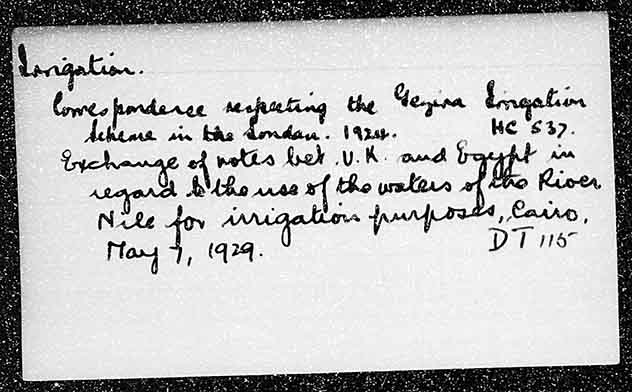 Irrigation.
Correspondence respecting the Gezira Irrigation
Scheme in the Soudan. 1924. HC 537.
Exchange of notes bet. U.K. and Egypt in
regard to the use of the waters of the River
Nile for irrigation purposes, Cairo,
May 7, 1929. DT 115